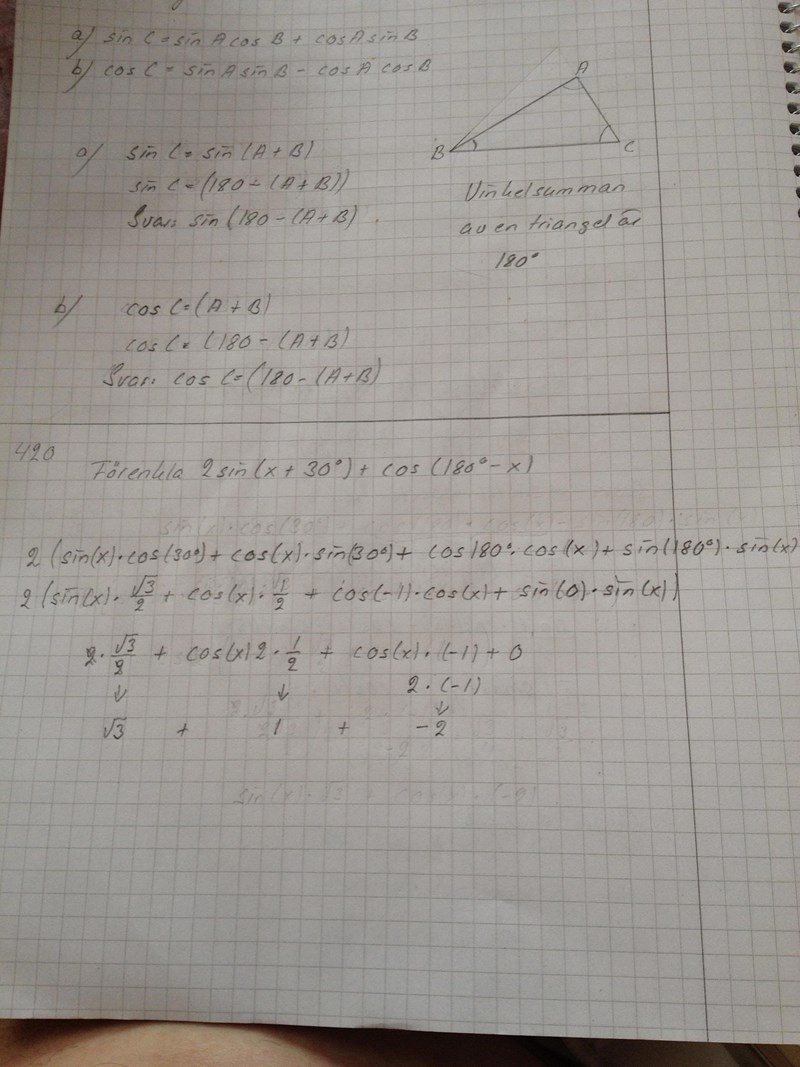 a) sin C = sin A cos B + cos A sin B
b) cos C = sin A sin B - cos A cos B
A
B
C
a) sin C = sin (A + B)
sin C = (180 - (A + B))
Svar: sin (180 - (A + B)
Vinkelsumman
av en triangel är
180°
b) cos C = (A + B)
cos C = (180 - (A + B)
Svar: cos C = (180 - (A + B)
420
Förenkla 2 sin (x + 30°) + cos (180° - x)
2 (sin(x) · cos(30°) + cos(x) · sin(30°) + cos 180° · cos (x) + sin(180°) · sin(x)
2 (sin(x) · √3/2 + cos(x) · 1/2 + cos(-1) · cos(x) + sin(0) · sin(x))
2 · √3/2 + cos(x) 2 · 1/2 + cos(x) · (-1) + 0
↓ ↓ 2 · (-1)
↓
√3 + 1 + -2